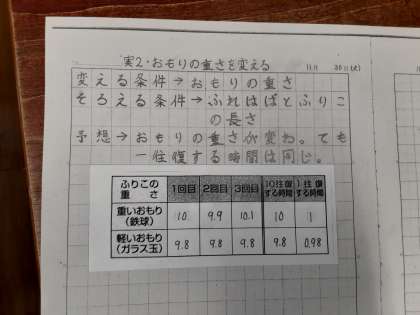 実2・おもりの重さを変える
変える条件→おもりの重さ
そろえる条件→ふれはばとふりこ
の長さ
予想→おもりの重さが変わっても
一往復する時間は同じ。
ふりこの重さ 1回目 2回目 3回目 10往復する時間 1往復する時間
重いおもり(鉄球) 10 9.9 10.1 10 1
軽いおもり(ガラス玉) 9.8 9.8 9.8 9.8 0.98